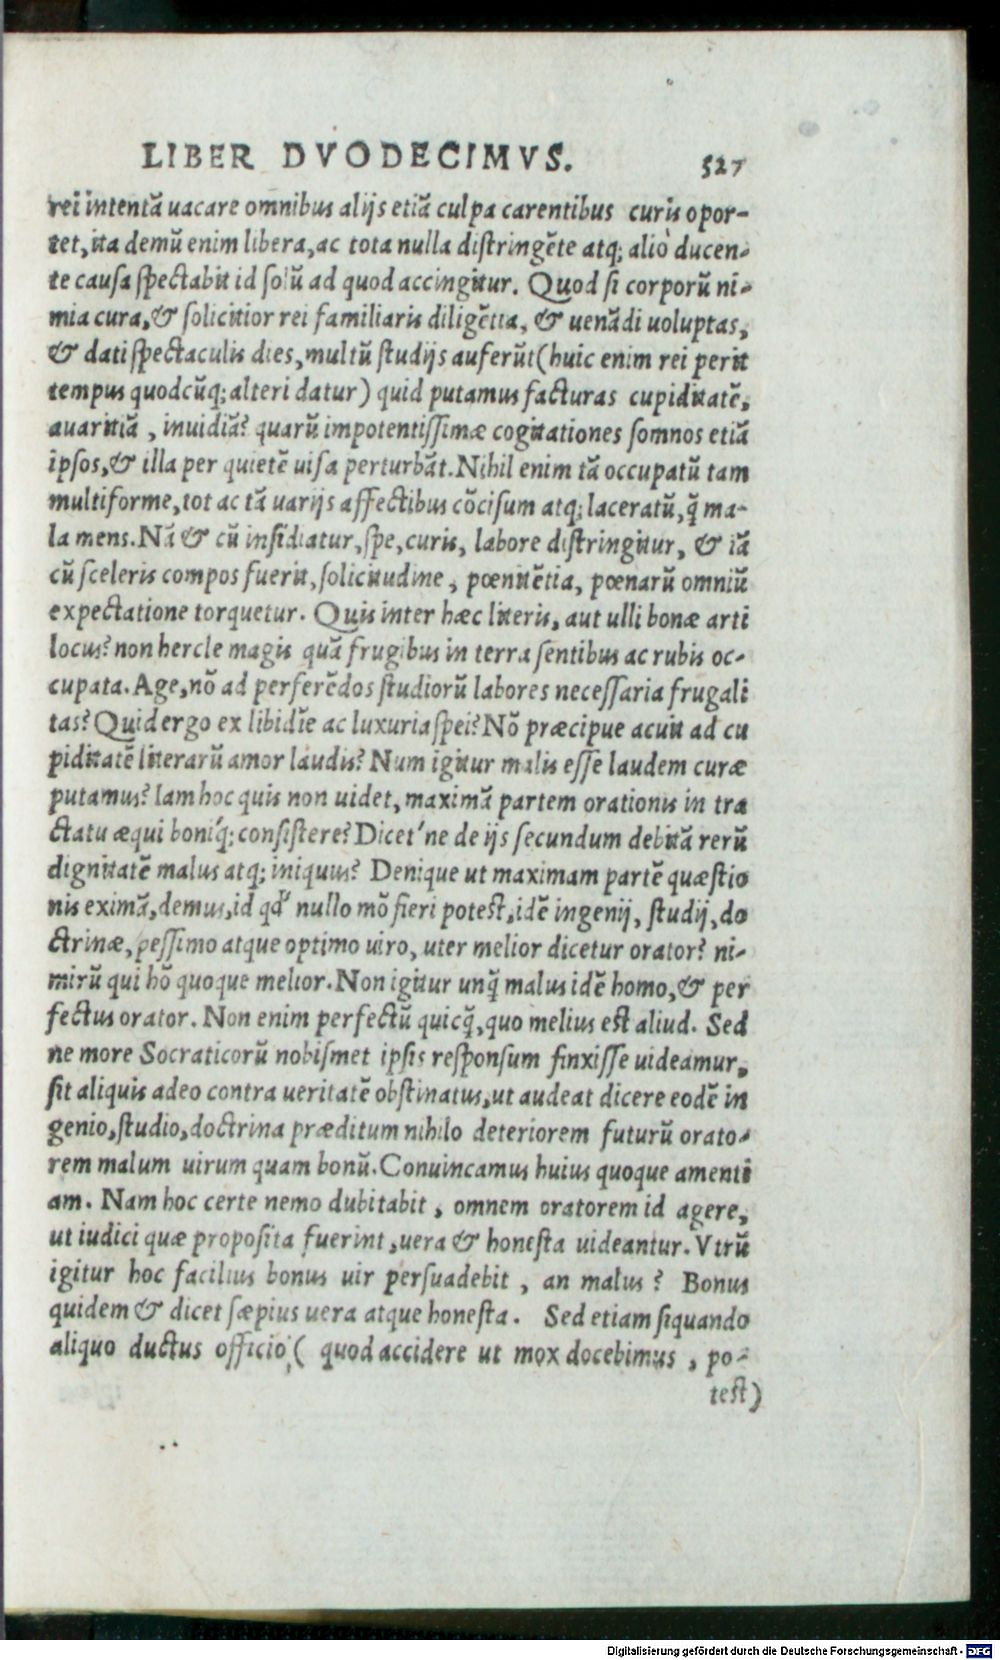 LIBER DVODECIMVS. 527
rei intentā uacare omnibus alijs etiā culpa carentibus curis opor-
tet, ita demū enim libera, ac tota nulla distringēte atq; aliò ducen-
te causa spectabit id solū ad quod accingitur. Quod si corporū ni-
mia cura, & solicitior rei familiaris diligētia, & uenādi uoluptas,
& dati spectaculis dies, multū studijs auferūt (huic enim rei perit
tempus quodcūq; alteri datur) quid putamus facturas cupiditatē,
auaritiā, inuidiā? quarū impotentissimæ cogitationes somnos etiā
ipsos, & illa per quietē uisa perturbāt. Nihil enim tā occupatū tam
multiforme, tot ac tā uarijs affectibus cōcisum atq; laceratū, q̄ ma-
la mens. Nā & cū insidiatur, spe, curis, labore distringitur, & iā
cū sceleris compos fuerit, solicitudine, pœnitētia, pœnarū omniū
expectatione torquetur. Quis inter hæc literis, aut ulli bonæ arti
locus? non hercle magis quā frugibus in terra sentibus ac rubis oc-
cupata. Age, nō ad perferēdos studiorū labores necessaria frugali
tas? Quid ergo ex libidīe ac luxuria spei? Nō præcipue acuit ad cu
piditatē literarū amor laudis? Num igitur malis esse laudem curæ
putamus? Iam hoc quis non uidet, maximā partem orationis in tra
ctatu æqui boníq; consistere? Dicet'ne de ijs secundum debitā rerū
dignitatē malus atq; iniquus? Denique ut maximam partē quæstio
nis eximā, demus, id qđ nullo mō fieri potest, idē ingenij, studij, do
ctrinæ, pessimo atque optimo uiro, uter melior dicetur orator? ni-
mirū qui hō quoque melior. Non igitur unq̄ malus idē homo, & per
fectus orator. Non enim perfectū quicq̄, quo melius est aliud. Sed
ne more Socraticorū nobismet ipsis responsum finxisse uideamur,
sit aliquis adeo contra ueritatē obstinatus, ut audeat dicere eodē in
genio, studio, doctrina præditum nihilo deteriorem futurū orato-
rem malum uirum quam bonū. Conuincamus huius quoque amenti
am. Nam hoc certe nemo dubitabit, omnem oratorem id agere,
ut iudici quæ proposita fuerint, uera & honesta uideantur. Vtrū
igitur hoc facilius bonus uir persuadebit, an malus? Bonus
quidem & dicet sæpius uera atque honesta. Sed etiam siquando
aliquo ductus officio, ( quod accidere ut mox docebimus, po-
test)
Digitalisierung gefördert durch die Deutsche Forschungsgemeinschaft - DFG